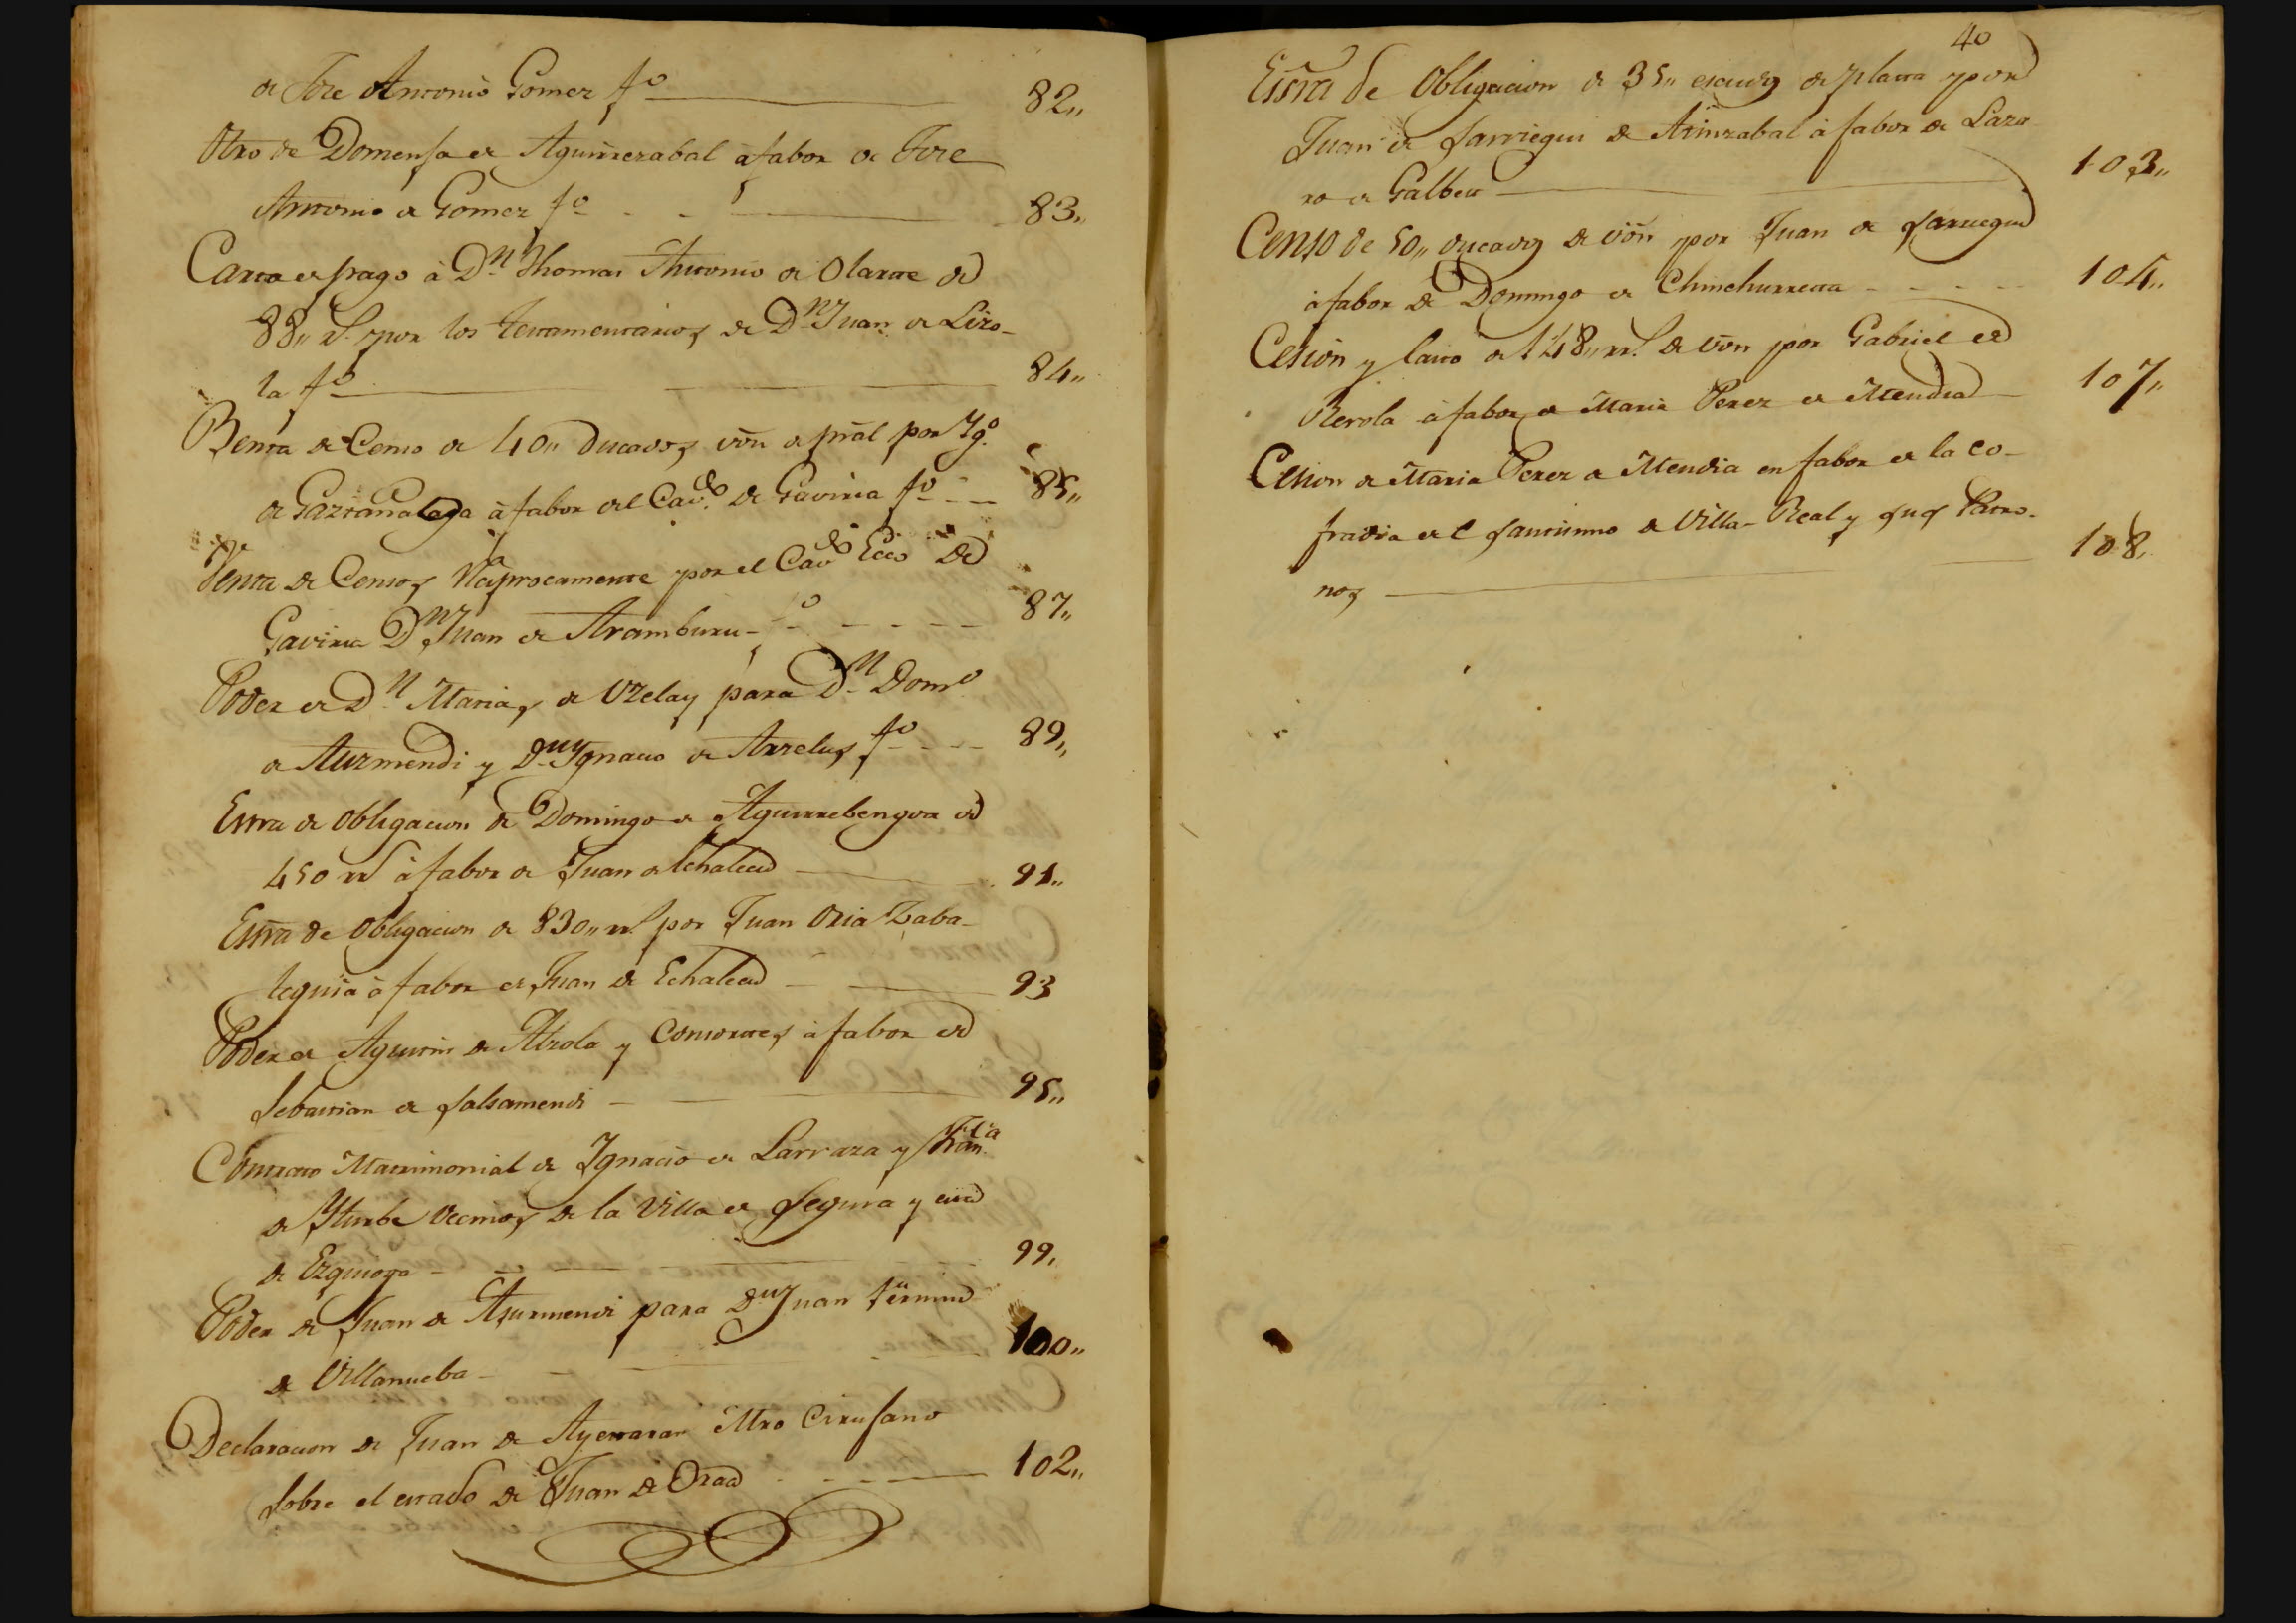 de Jose Antonio Gomez fo 82,,
Otro de Domensa de Aguirrezabal à fabor de Jose
Antonio de Gomez fo 83,,
Carta de pago à Dn. Thomas Antonio de Olarte de
88,, rs. por los testamentarios de Dn Juan de Lizo-
la fo 84,,
Benta de Censo de 40,, Ducados von de pral por Ygo.
de Gaztañalaga à fabor del Cavdo. de Gaviria fo 85,,
Venta de Censos reciprocamente por el Cavdo Ecco de
Gaviria Dn Juan de Aramburu fo 87,,
Poder de Dn. Matias de Uzelay para Dn. Domo
de Aurmendi y Dn Ygnacio de Arzelus fo 89,,
Essra de obligacion de Domingo de Aguirrebengoa de
450 rrs à fabor de Juan de Echalecu 91,,
Essra de obligacion de 830,, rrs. por Juan Oria Zaba-
leguia à fabor de Juan de Echalecu 93
Poder de Agustin de Alzola y Consortes à fabor de
Sebastian de Salsamendi 95,,
Contrato Matrimonial de Ignacio de Larraza y Franca
de Yturbe vecinos de la Villa de Segura y esta
de Ezquioga 99,
Poder de Juan de Asurmendi para Dn Juan Fermin
de Villanueba 100,,
Declaracion de Juan de Ayerzaran Mro Cirujano
sobre el estado de Juan de Oraa 102,,
40
Essra de Obligacion de 35,, escudos de plata por
Juan de Sarriegui de Arinzabal à fabor de Laza-
ro de Galbete 103,,
Censo de 50,, ducados de von por Juan de Sarriegui
à fabor de Domingo de Chinchurreta 104,,
Cesion y lasto de 148,, rrs. de von por Gabriel de
Rerola à fabor de Maria Perez de Mendia 107,,
Cesion de Maria Perez de Mendia en fabor de la Co-
fradia del Santisimo de Villa-Real y sus Patro-
nos 108,